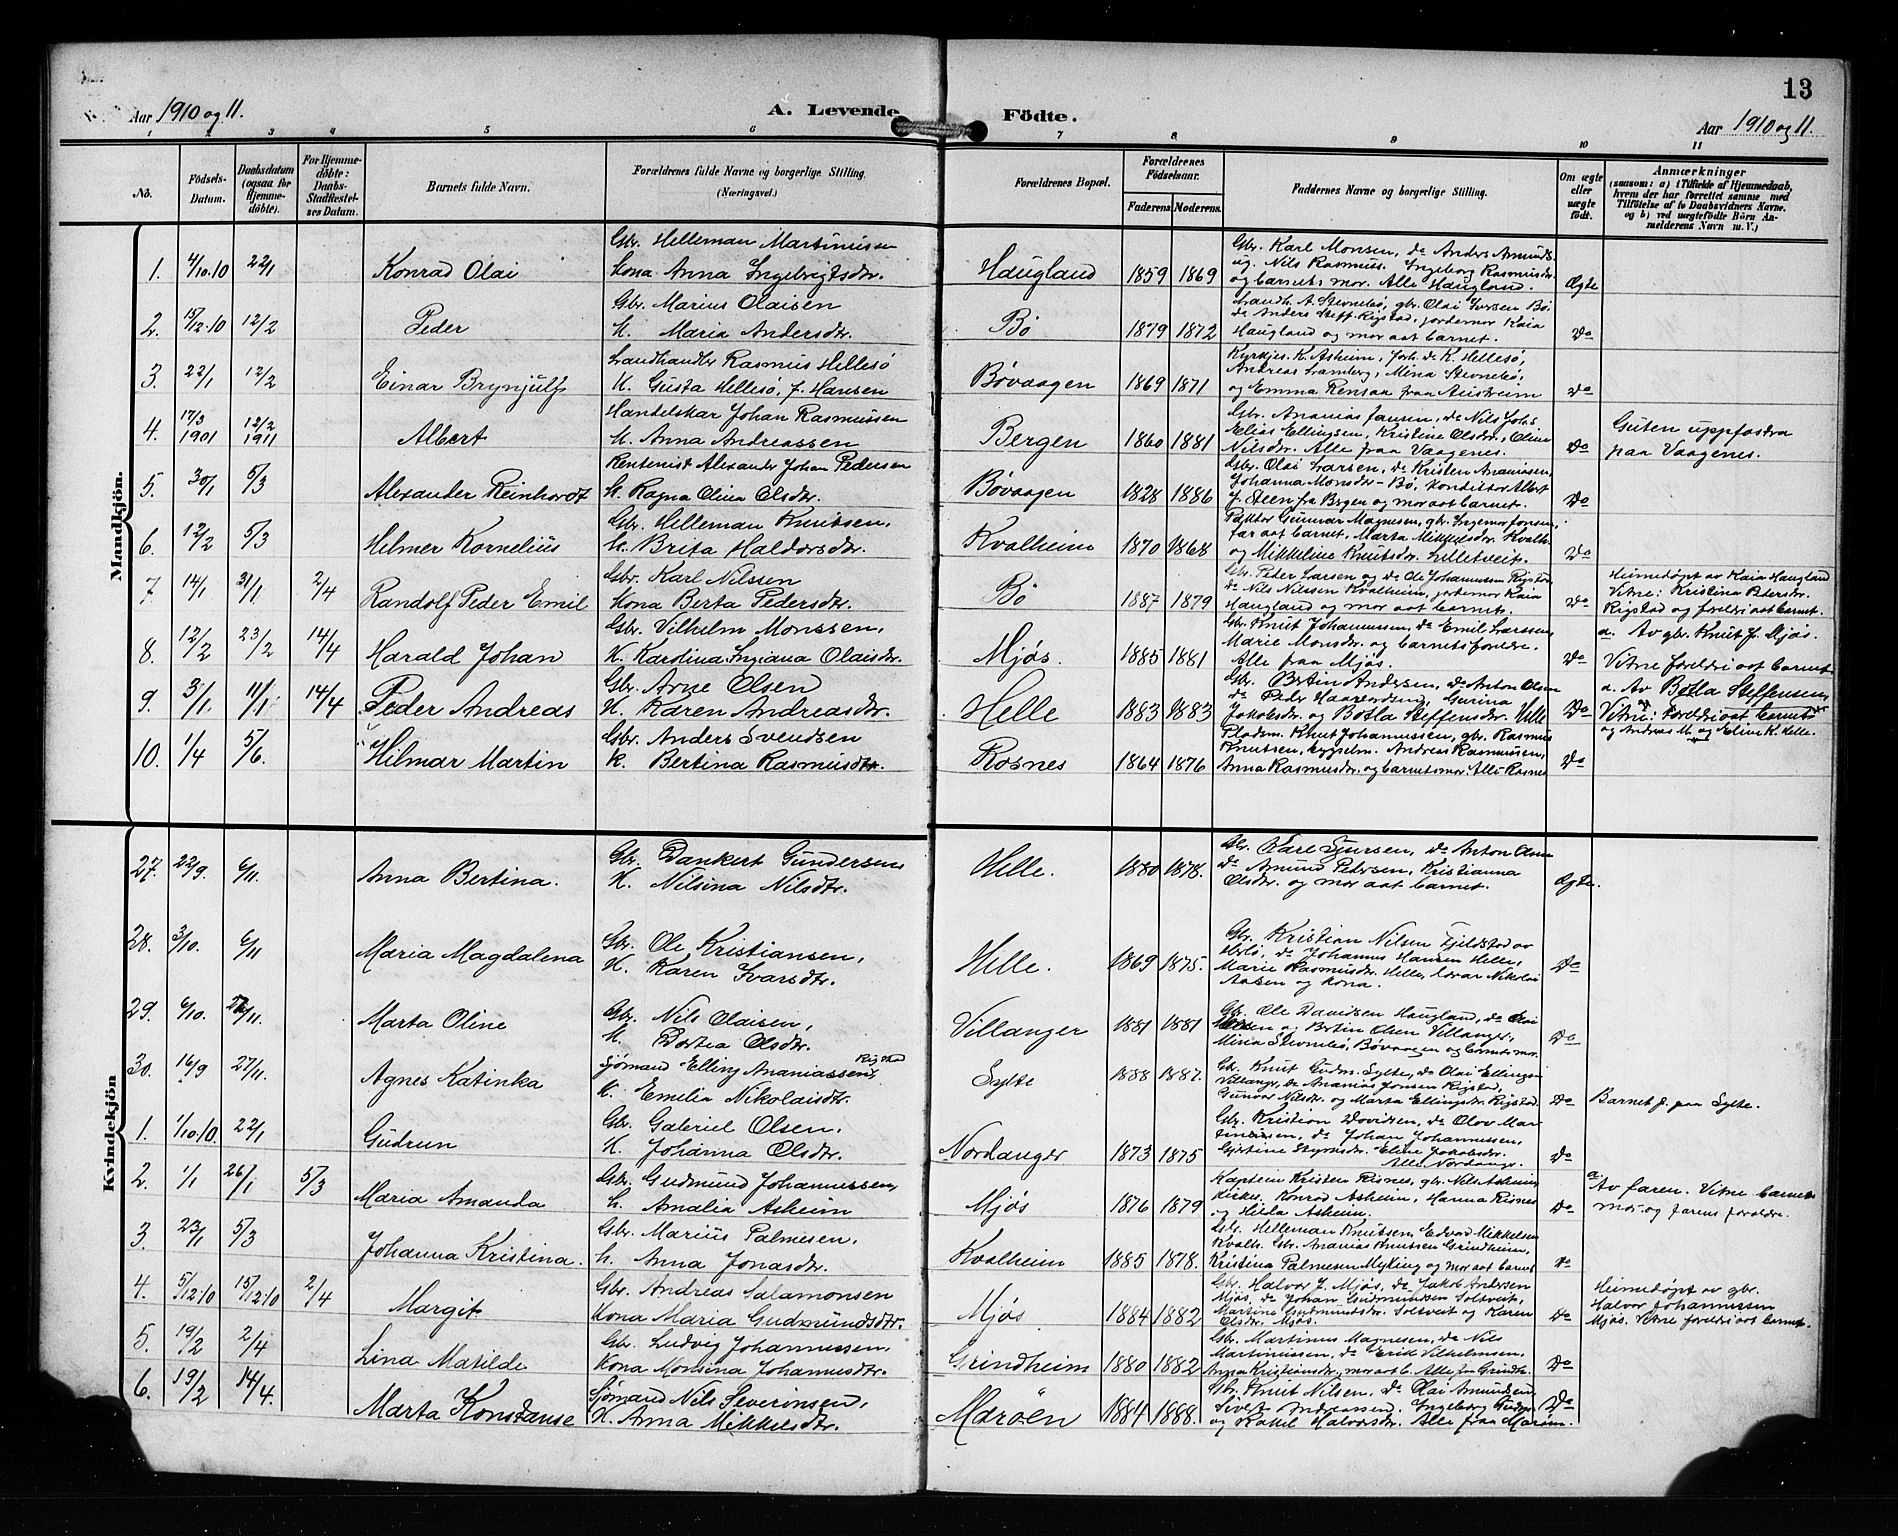 13
Aar 1910 og 11.
A. Levende Födte.
Aar 1910 og 11.
1 2 3 4 5 6 7 8 9 10 11
Nö.
Födsels-Datum.
Daabsdatum (ogsaa for Hjemme-döbte).
For Hjemme-döbte: Daabs-Stadfestel-ses Datum.
Barnets fulde Navn.
Forældrenes fulde Navne og borgerlige Stilling.
(Næringsvei.)
Forældrenes Bopæl.
Forældrenes Födselsaar.
Faderens. Moderens.
Faddernes Navne og borgerlige Stilling.
Om ægte eller uægte födt.
Anmærkninger
(saasom: a) i Tilfælde af Hjemmedaab, hvem der har forrettet samme med Tilföielse af to Daabsvidners Navne. og b) ved uægtefödte Börn An-melderens Navn m. V.)
Mandkjön.
1. 4/10.10 22/1 Konrad Olai
Gbr. Helleman Martinussen
Kona Anna Ingebrigtsdtr.
Haugland 1859 1869
Gbr. Karl Monsen, do Anders Amunds.
og Nils Rasmuss. Ingeborg Rasmusdtr
og barnets mor. Alle Haugland.
Ægte
2. 15/12.10 12/2 Peder
Gbr. Marius Olaisen
K. Maria Andersdtr.
Bö 1879 1872
Landh. A. Stevnebö, gbr. Olai Iversen Bö.
do Anders Steff. Rigstad, jordemor Kaia
Haugland og mor aat barnet.
Do
3. 22/1 12/2 Einar Brynjulf
Landhandler Rasmus Hellesö
K. Gusta Hellesö, f. Hansen
Bövaagen 1869 1871
Kyrkjes. K. Asheim, Joh. do K. Hellesö,
Andreas Lramberg, Mina Stevnebö,
og Emma Rensaa fraa Austrheim
Do
4. 17/3 1901 12/2 1911 Albert
Handelskar Johan Rasmussen
K. Anna Andreassen
Bergen 1860 1881
Gbr. Ananias Jansen, do Nils Johs.
Elias Ellingsen, Kristine Olsdtr., Oline
Nilsdtr. Alle fraa Vaagenes.
Do
Guten uppfostra
paa Vaagenes.
5. 30/1 5/3 Alexander Reinhordt
Rentenist Alexander Johan Pedersen
k. Ragna Olina Olsdtr.
Bövaagen 1828 1886
Gbr. Olai Larsen, do Kristen Ananiassen,
Johanna Monsdtr - Bö, Konditor Albert
J. Steen fra Bergen og mor aat barnet.
Do
6. 12/2 5/3 Hilmer Kornelius
Gbr. Helleman Knutsen.
k. Brita Haldorsdtr.
Kvalheim 1870 1868
Faktor Gunnar Magnesen, gbr. Ingemor Jonsen,
far aat barnet, Marta Mikkelsdtr. Kvalh.
og Mikkeline Knutsdtr. Lilletveit.
Do
7. 14/1 31/1. 2/4 Randolf Peder Emil
Gbr. Karl Nilssen
Kona Berta Pedersdtr.
Bö 1887 1879
Gbr. Peder Larsen og do Ole Johannessen Rigstad
do Nils Nilssen Kvalheim, jordemor Kaia
Haugland og mor aat barnet.
Do
Heimedöpt av Kaia Haugland
Vitne: Kristina Petersdtr.
Rigstad og foreldri aat barnet.
8. 12/2 23/2 14/4 Harald Johan
Gbr. Vilhelm Monssen,
K. Karolina Ingiana Olaisdtr.
Mjös. 1885 1881
Gbr. Knut Johannessen, do Emil Larssen,
Marie Monsdtr. og barnets foreldre.
Alle fraa Mjös.
Do
a. Av gbr. Knut J. Mjös.
Vitne foreldri aat barnet
9. 3/1. 11/1 14/4 Peder Andreas
Gbr. Arne Olsen
K. Karen Andreasdtr.
Helle 1883 1883
Gbr. Bertin Andersen, do Anton Olsen
do Peder Haagensen, Gurina
Jakobsdtr. og Botla Steffensdtr. Helle
Do
a. Av Botla Steffensen,
Vitne: foreldri aat barnet
og Andreas M. og Eline K. Helle.
10. 1/4 5/6. Hilmar Martin
Gbr. Anders Svendsen
k. Bertina Rasmusdtr.
Rosnes 1864 1876
Pladsm. Knut Johannessen, gbr. Rasmus
Knutsen, bygselm. Andreas Rasmussen,
Anna Rasmusdtr. og barnets mor. Alle Rosnes
Do
Kvindekjön
27. 22/9. 6/11. Anna Bertina.
Gbr. Dankert Gundersen,
K. Nilsina Nilsdtr.
Helle. 1880 1878.
Gbr. Karl Sjursen, do Anton Olsen
do Amund Pedersen, Kristianna
Olsdtr. og mor aat barnet.
Ægte.
28. 3/10. 6/11 Maria Magdalena
Gbr. Ole Kristiansen,
K. Karen Ivarsdtr.
Helle. 1869 1875.
Gbr. Kristian Nilsen Fjeldstad av
Herlö, do Johannes Hansen Helle,
Marie Rasmusdtr. Helle, lærar Nikolai
Aalsen og kona.
Do
29. 6/10. 27/11. Marta Oline
Gbr. Nils Olaisen,
K. Bortea Olsdtr.
Villanger 1881 1881
Gbr. Ole Davidsen Haugland, do Olai
Nilsen og Bertin Olsen Villanger,
Mina Stevnebö, Bövaagen og barnets mor.
Do
30. 16/9 27/11. Agnes Katinka
Sjömand Elling Ananiassen, Rigstad
K. Emelia Nikolaisdtr.
Sylte 1888 1887.
Gbr. Knut Gudm. Sylte, do Olai Ellingsen
Villanger, do Ananias Jonsen Rigstad,
Gunvor Nilsdtr. og Marta Ellingsdtr. Rigstad.
Do
Barnet f. paa Sylte.
1. 1/10.10. 22/1 Gudrun
Gbr. Gabriel Olsen,
K. Johanna Olsdtr.
Nordanger 1873 1875
Gbr. Kristian Davidsen, do Olav Mar-
tinussen, do Johan Johannessen,
Gjertine Styrksdtr. Eline Jakobsdtr.
Alle Nordanger.
Do
2. 1/1 26/1 5/3 Maria Amanda
Gbr. Gudmund Johannessen,
k. Amalia Asheim
Mjös 1876 1879
Kaptein Kristen Risnes, gbr. Nils Asheim,
kirkes. Konrad Asheim, Hanna Risnes
og Hilda Asheim.
Do
a Av faren. Vitne barnets
mor og farens foreldre.
3. 23/1 5/3 Johanna Kristina.
Gbr. Marius Palmesen,
k. Anna Jonasdtr.
Kvalheim 1885 1878.
Gbr. Helleman Knutsen, Edvard Mikkelsen
Kvalh. Gbr. Ananias Knutssen Grindheim,
Kristina Palmesen Myking og mor aat barnet
Do
4. 5/12.10 15/12.10 2/4 Margit
Gbr. Andreas Salamonsen
Kona Maria Gudmundsdtr.
Mjös 1884 1882
Gbr. Halvor J. Mjös, do Jakob Andersen
Mjös, do Johan Gudmundsen Soltveit,
Martine Gudmundsdtr. Soltveit og Karen
Olsdtr. Mjös.
Do
Heimedöpt av gbr.
Halvor Johannessen
Mjös. Vitne foreldri aat barnet.
5. 19/2 2/4 Lina Matilde
Gbr. Ludvig Johannessen,
Kona Monsina Johannesdtr.
Grindheim 1880 1882
Gbr. Martinus Magnesen, do Nils
Martinussen, do Erik Vilhelmsen,
Anna Kristiansdtr., mor aat b. Alle fra Grindh.
Do
6. 19/2 14/4. Marta Konstanse
Sjömand Nils Severinsen,
K. Anna Mikkelsdtr.
Maröen 1884 1888.
Gbr. Knut Nilsen, do Olai Amundsen
Sivert Andreassen, Ingeborg
og Rakel Halvorsdtr. Alle fraa Maröen.
Do